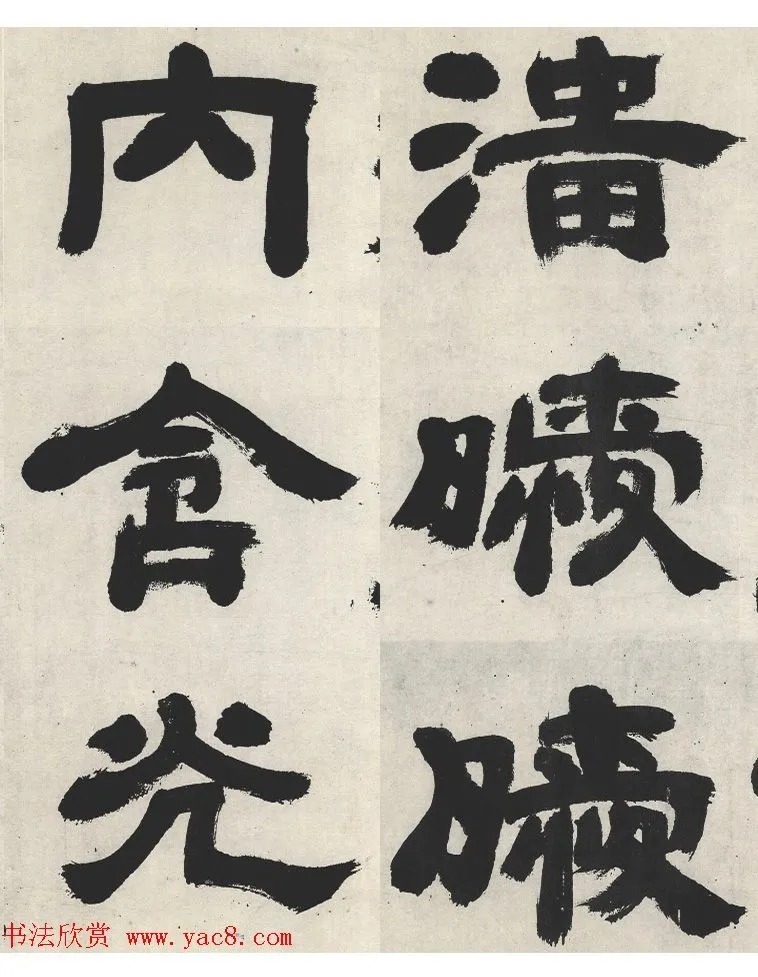 淄曖曖
内含光
书法欣赏 www.yac8.com